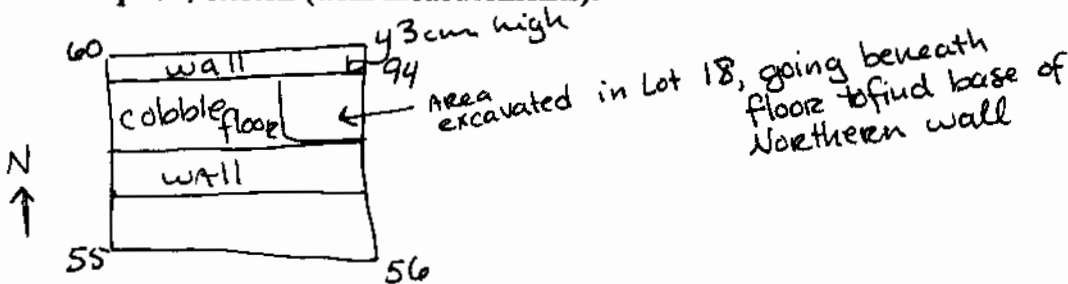 60
43 cm high
wall
94
cobble floor
Area excavated in Lot 18, going beneath
floor to find base of
Northern wall
N
wall
55
56